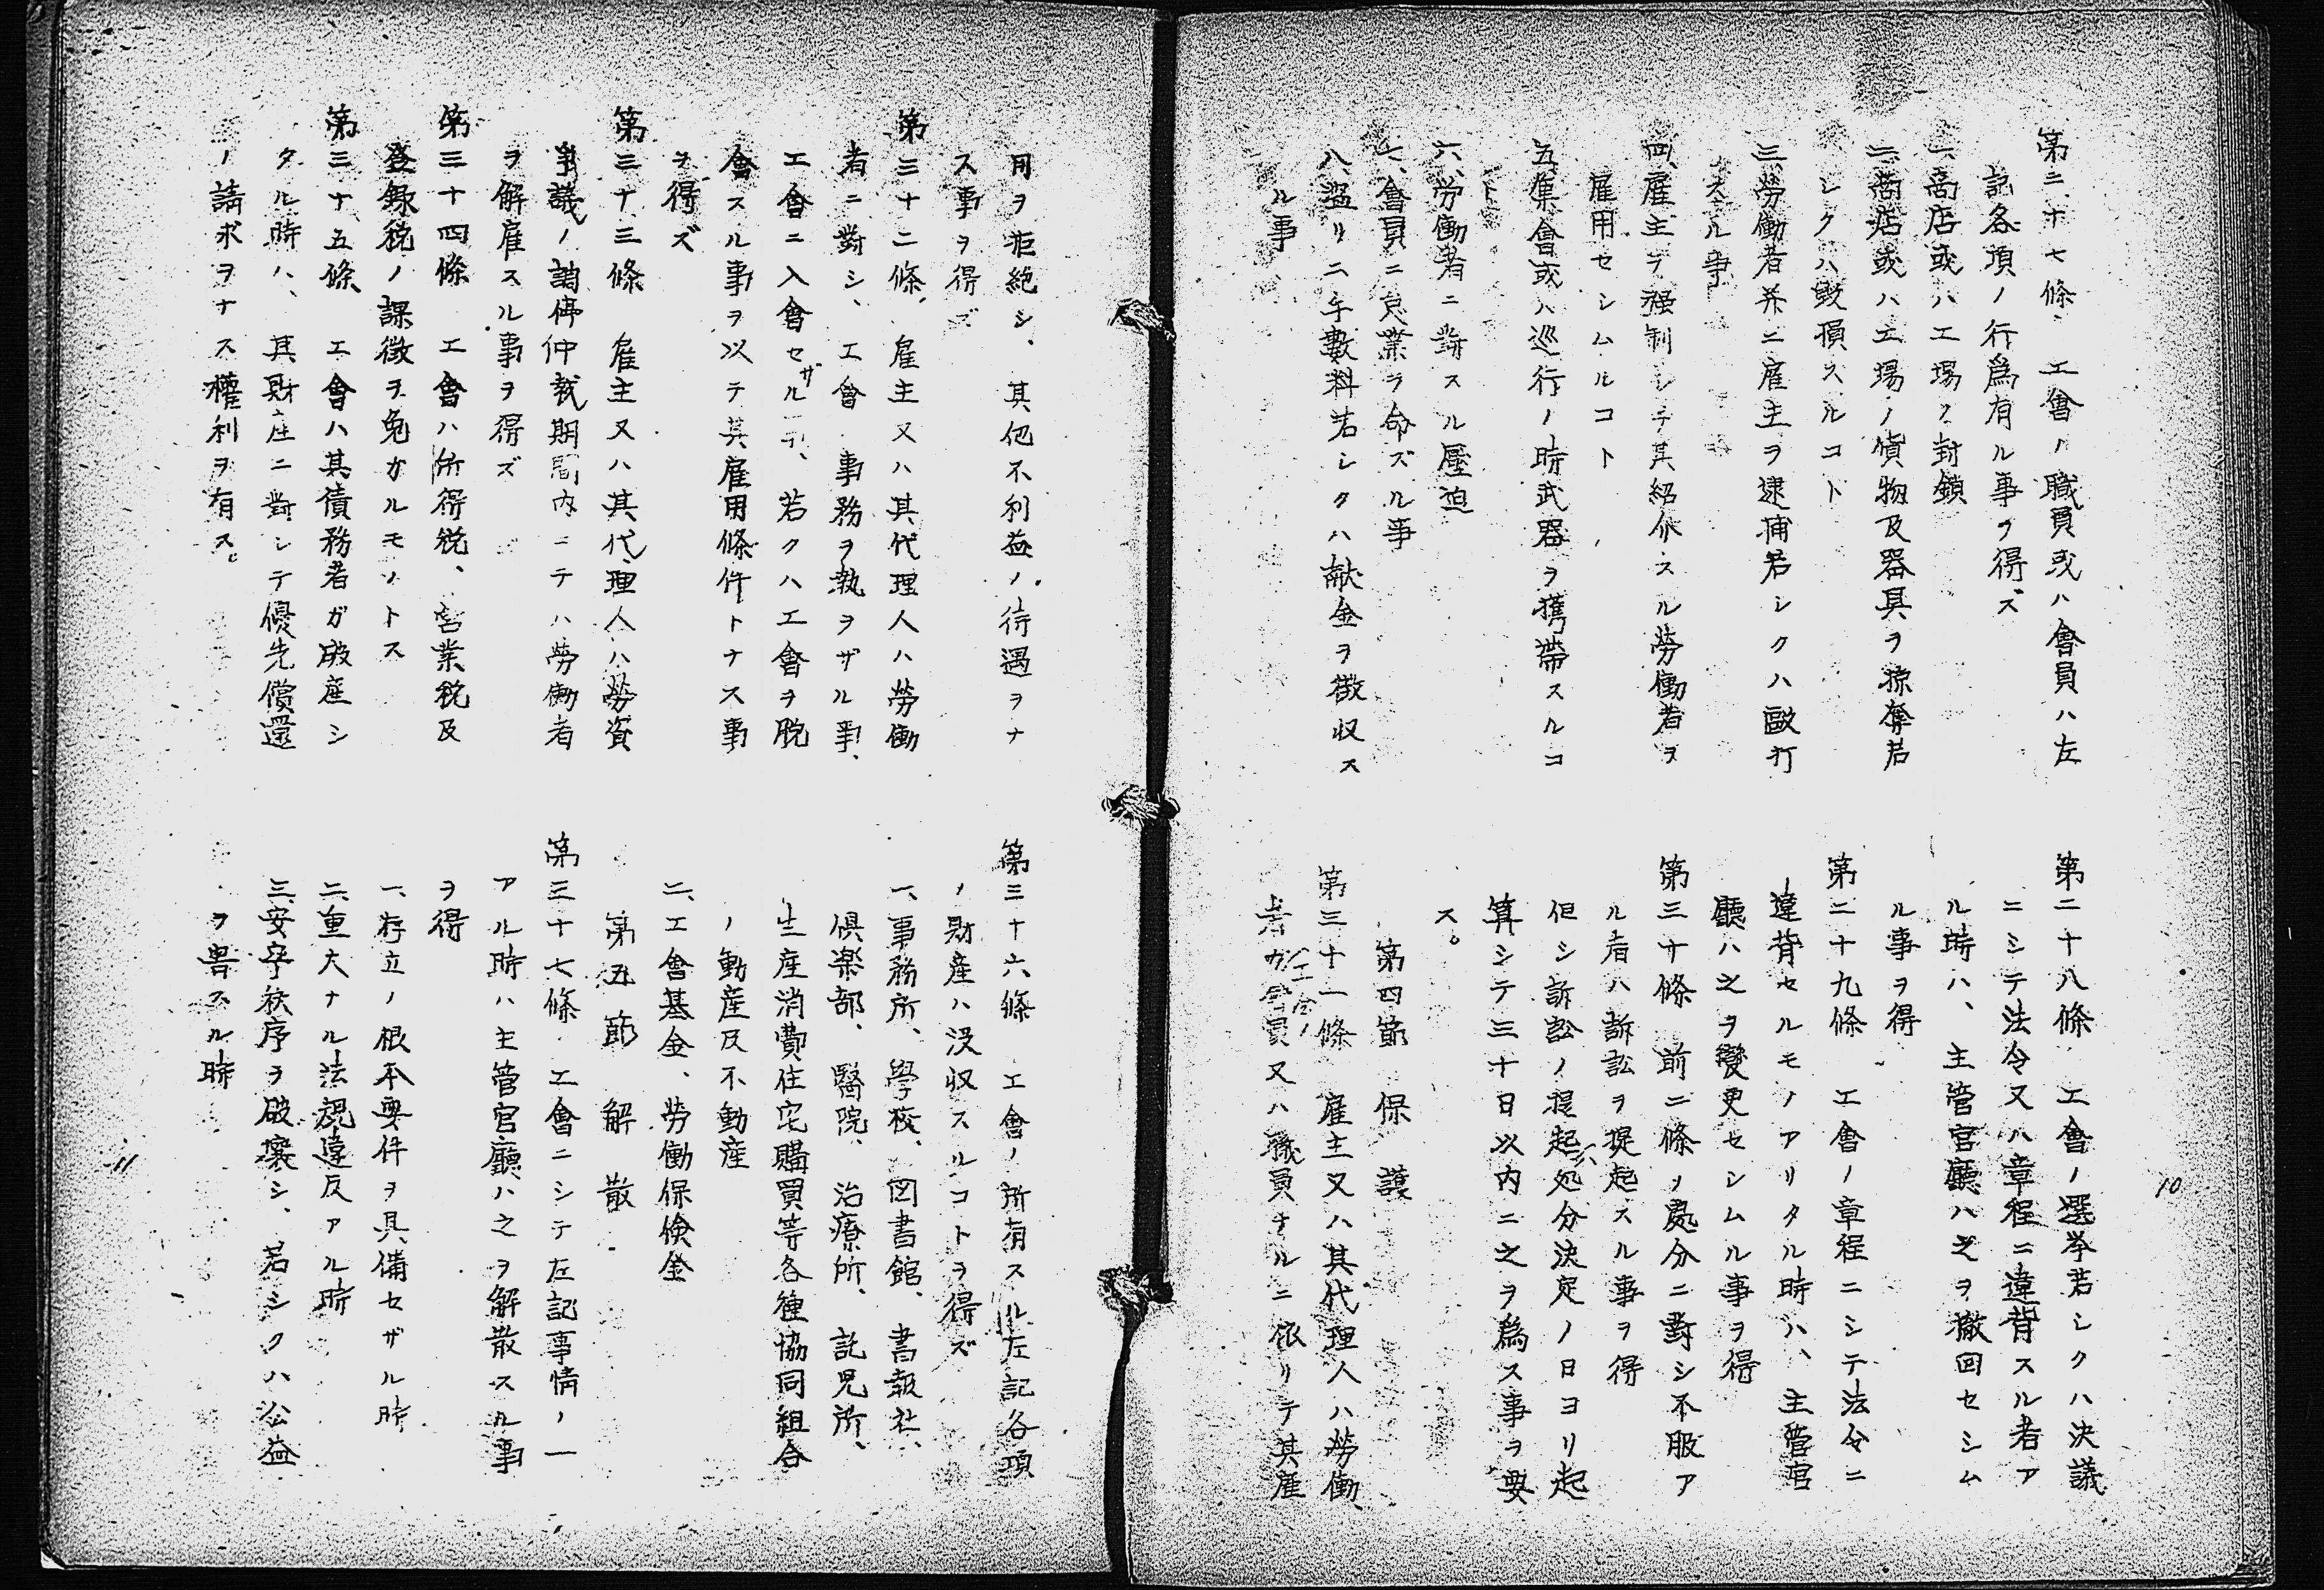 第二十七條、工會ノ職員或ハ會員ハ左
記各項ノ行爲有ル事ヲ得ズ
一、商店或ハ工場ノ封鎖
二、商店或ハ工場ノ貨物及器具ヲ掠奪若
シクハ毀損スルコト
三、労働者并ニ雇主ヲ逮捕若シクハ毆打
スル事
四、雇主ヲ强制シテ其紹介スル勞働者ヲ
雇用セシムルコト
五、集會或ハ巡行ノ時武器ヲ携帶スルコ
ト
六、労働者ニ對スル壓迫
七、會員ニ怠業ヲ命ズル事
八、盗リニ手數料若シクハ献金ヲ徴収ス
ル事
第二十八條　工會ノ選挙若シクハ決議
ニシテ法令又ハ章程ニ違背スル者ア
ル時ハ、主管官廳ハ之ヲ撤回セシム
ル事ヲ得
第二十九條　工會ノ章程ニシテ法令ニ
違背セルモノアリタル時ハ、主管官
廳ハ之ヲ變更セシムル事ヲ得
第三十條　前二條ノ處分ニ對シ不服ア
ル者ハ訴訟ヲ提起スル事ヲ得
但シ訴訟ノ提起ハ処分決定ノ日ヨリ起
算シテ三十日以内ニ之ヲ爲ス事ヲ要
ス。
第四節　保護
第三十一條　雇主又ハ其代理人ハ勞働
者ガ工会ノ會員又ハ職員ナルニ依リテ其雇
10
用ヲ拒絶シ、其他不利益ノ待遇ヲナ
ス事ヲ得ズ
第三十二條、雇主又ハ其代理人ハ勞働
者ニ對シ、工會事務ヲ執ヲザル事、
工會ニ入會セザル事、若クハ工會ヲ脱
會スル事ヲ以テ其雇用條件トナス事
ヲ得ズ
第三十三條　雇主又ハ其代理人ハ勞資
爭議ノ調停仲裁期間内ニテハ勞働者
ヲ解雇スル事ヲ得ズ
第三十四條　工會ハ所得税、営業税及
登録税ノ課徴ヲ免ガルモノトス
第三十五條、工會ハ其債務者ガ破産シ
タル時ハ、其財産ニ對シテ優先償還
ノ請求ヲナス權利ヲ有ス。
第三十六條　工會ノ所有スル左記各項
ノ財産ハ没収スルコトヲ得ズ
一、事務所、學校、図書館、書報社、
倶楽部、醫院、治療所、託児所、
生産消費住宅購買等各種協同組合
ノ動産及不動産
二、工會基金、勞働保倹金
第五節　解散
第三十七條　工會ニシテ左記事情ノ一
アル時ハ主管官廳ハ之ヲ解散スル事
ヲ得
一、存立ノ根本要件ヲ具備セザル時
二、重大ナル法規違反アル時
三、安寧秩序ヲ破壞シ、若シクハ公益
ヲ害スル時
11